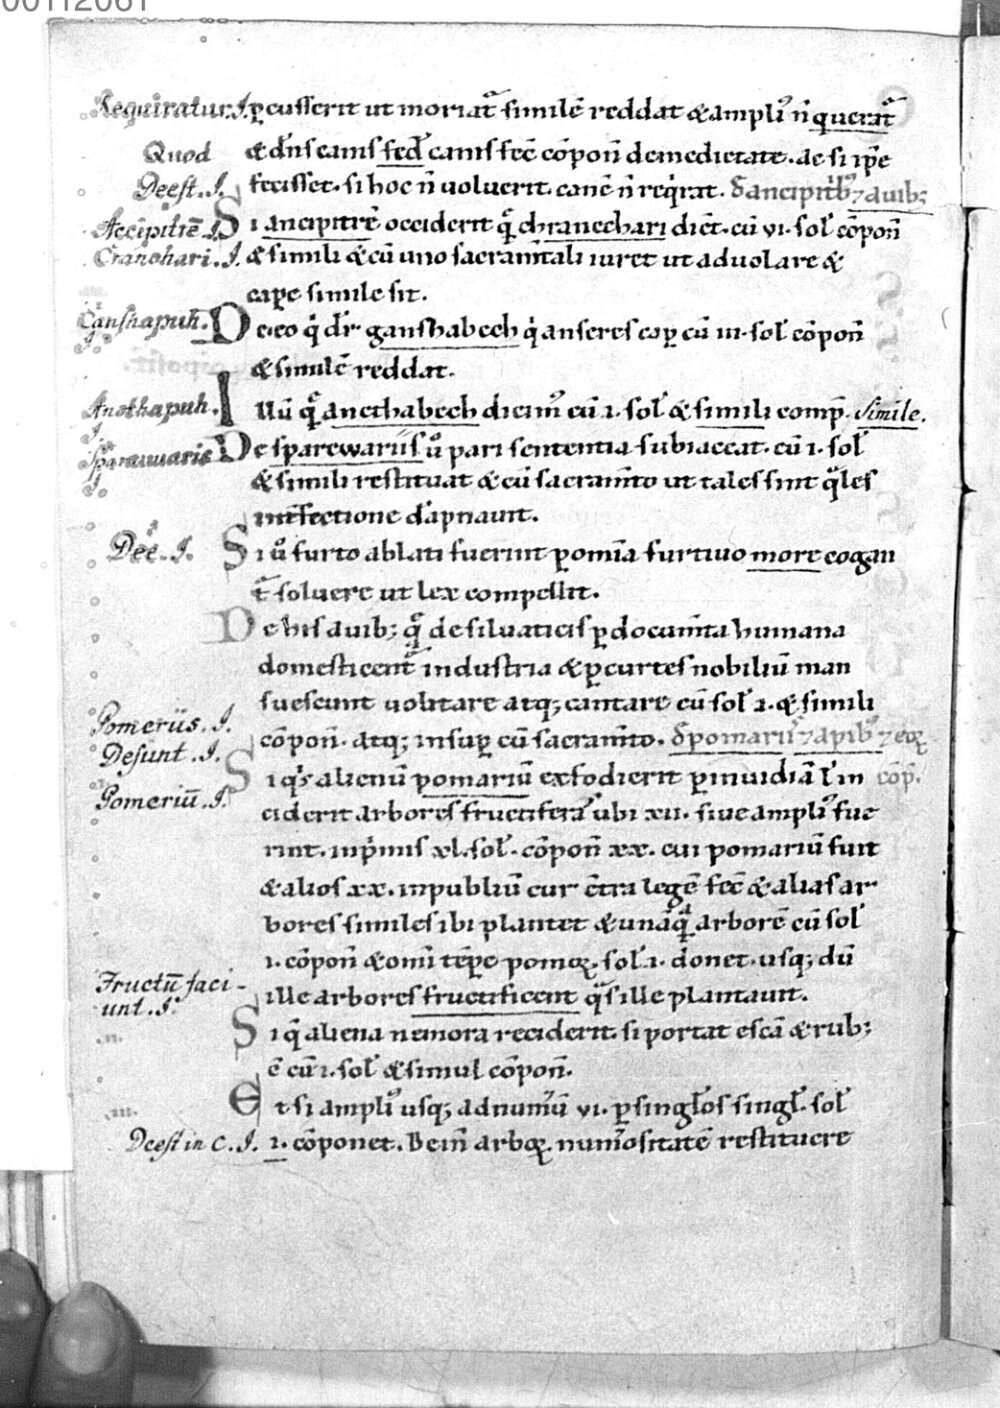 Requiratur. J. ꝑcusserit ut moriat᷑ similē reddat & ampli᷒ n̄ querat᷑
Quod & dn̄s canis sed̄ canis fec̄ cōpon̄ demedietate. ac si ip̄e
Deest. J. fecisset. si hoc n̄ voluerit. canē n̄ reqͥrat. D̄ ancipitͥb; ⁊ auib;
Accipitrē J. Si ancipitrē occiderit qͣ chranechari dic̄t. cū vi. sol̄ cōpon̄
Cranohari. J. & simili & cū uno sacram̄tali iuret ut ad volare &
caꝑe simile sit.
Ganshapuh. J. De eo qͥ dr̄ ganshabech qͥ anseres capͥ cū iii. sol̄ cōpon̄
& similē reddat.
Anothapuh. J. Illū qͣ anethabech dicim᷒ cū i. sol̄ & simili comp̄. Simile.
Sparauuaris J. De sparewariis u᷒ pari sententia subiaceat. cū i. sol̄
& simili restituat & cū sacram̄to ut tales sint qͣles
int̄fectione dāpnauit.
Deē. J. Si u᷒ furto ablati fuerint ꝑ om̄ia furtiuo more cogan
t᷑ soluere ut lex compellit.
De his auib; qͣ de siluaticis ꝑ docum̄ta humana
domesticent᷑ industria & ꝑ curtes nobiliū man
suescunt volitare atq; cantare cū sol̄ i. & simili
Pomeriis. J. cōpon̄. atq; insuꝑ cū sacram̄to. D̄ pomariis ⁊ apib᷒ ⁊ eoꝝ
Desunt. J. Si qͥs alienū pomariū exfodierit ꝑ inuidiā l̄ in cōp.
Pomeriū. J. ciderit arbores fructiferas ubi xii. siue ampli᷒ fue
rint. inpͥmis xl. sol̄. cōpon̄ xx. cui pomariū fuit
& alios xx. in publiū cur c̄tra legē fec̄ & alias ar
bores similes ibi plantet & unāqͣ arborē cū sol̄
i. cōpon̄ & om̄i tēpͤ pomoꝝ. sol̄ i. donet. usq; dū
Fructū faci- ille arbores fructificent qͣs ille plantauit.
unt. J.
Si qͥ aliena nemora reciderit. si portat escā & rub;
ē cū i. sol̄ & simul cōpon̄.
Et si ampli᷒ usq; ad num̄ū vi. ꝑ singl̄os singl̄. sol̄
Deest in C. J. i. cōponet. Dein̄ arboꝝ. num̄ositatē restituere